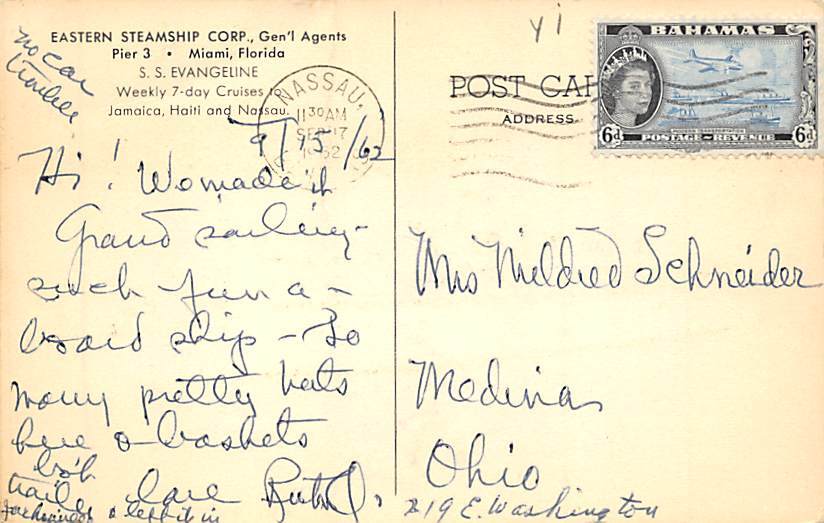 EASTERN STEAMSHIP CORP., Gen'l Agents
Pier 3 • Miami, Florida
S. S. EVANGELINE
Weekly 7-day Cruises to
Jamaica, Haiti and Nassau.
no car
trouble
NASSAU,
11 30 AM
SEP 17
1962
9/15/62
Hi! We made it
Grand sailing -
such fun a-
board ship - So
many pretty hats
here & baskets
Love Ruth J.
yi
POST CAR
ADDRESS
BAHAMAS
6d
POSTAGE REVENUE
6d
Mrs Mildred Schneider
Medina
Ohio
219 E. Washington